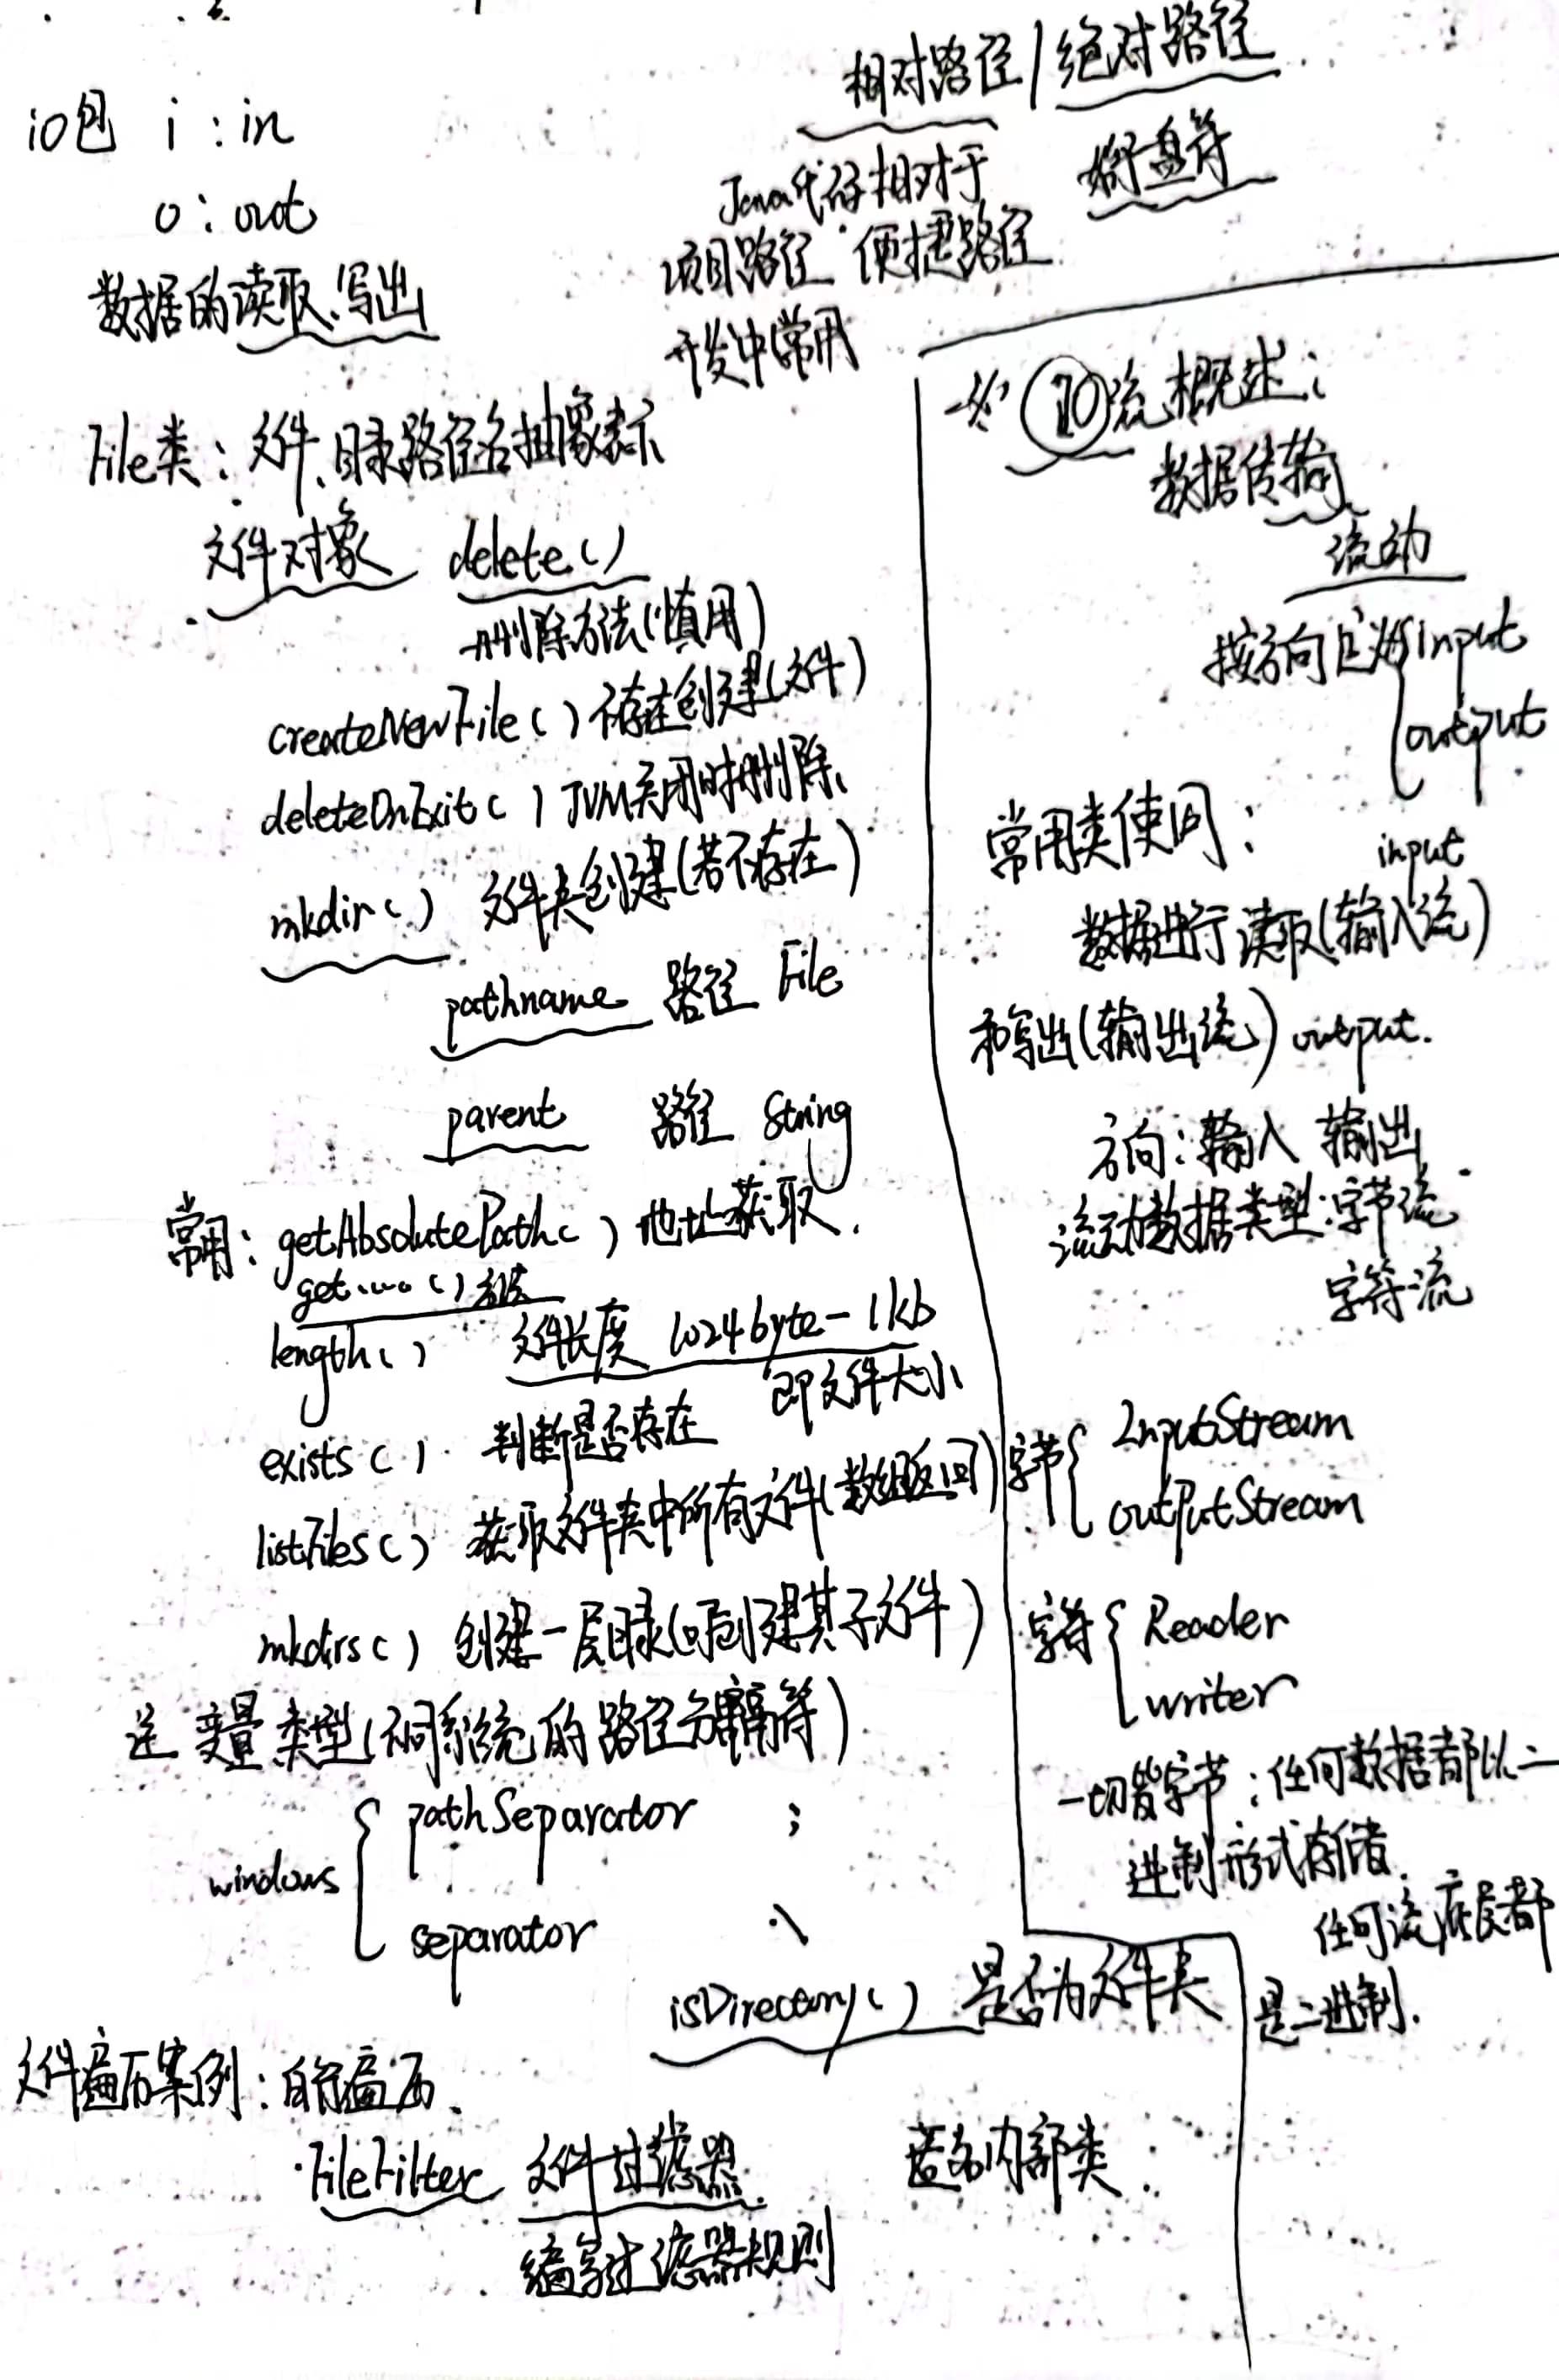 io包 i:in
o:out
数据的读取、写出
相对路径/绝对路径
Java代码相对于
项目路径 便捷路径
开发中常用
盘符
File类:文件、目录路径名抽象表示
文件对象 delete()
删除方法(慎用)
createNewFile() 不存在创建(文件)
deleteOnExit() JVM关闭时删除、
mkdir() 文件夹创建(若不存在)
pathname 路径 File
parent 路径 String
常用:getAbsolutePath() 地址获取.
get....()方法
length() 文件长度 1024byte-1kb
即文件大小
exists() 判断是否存在
listFiles() 获取文件夹中所有文件(数组返回)
mkdirs() 创建一层目录(可创建其子文件)
变量类型(不同系统的路径分隔符)
windows { pathSeparator ;
separator \
isDirectory() 是否为文件夹
文件遍历案例:自行遍历.
·FileFilter 文件过滤器 匿名内部类
编写过滤器规则
IO流概述:
数据传输
流动
按方向区分{input
output
常用类使用:
input
数据进行读取(输入流)
和写出(输出流) output.
方向:输入 输出
流动数据类型:字节流
字符流
字节{ InputStream
outPutStream
字符{ Reader
writer
一切皆字节:任何数据都以二
进制形式存储.
任何流底层都
是二进制.